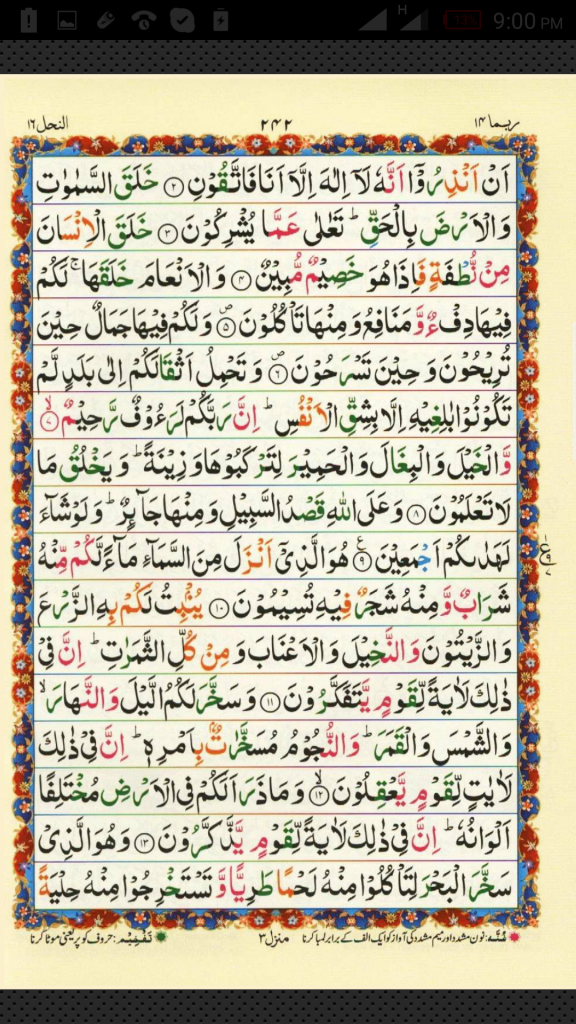 H 13% 9:00 PM
ربما ۱۴ ۲۴۲ النحل ۱۶
اَنْ اَنْذِرُوْۤا اَنَّهٗ لَاۤ اِلٰهَ اِلَّاۤ اَنَا فَاتَّقُوْنِ ۝۲ خَلَقَ السَّمٰوٰتِ
وَالْاَرْضَ بِالْحَقِّ ؕ تَعٰلٰى عَمَّا يُشْرِكُوْنَ ۝۳ خَلَقَ الْاِنْسَانَ
مِنْ نُّطْفَةٍ فَاِذَا هُوَ خَصِيْمٌ مُّبِيْنٌ ۝۴ وَالْاَنْعَامَ خَلَقَهَا ۚ لَكُمْ
فِيْهَا دِفْءٌ وَّمَنَافِعُ وَمِنْهَا تَاْكُلُوْنَ ۝۵ وَلَكُمْ فِيْهَا جَمَالٌ حِيْنَ
تُرِيْحُوْنَ وَحِيْنَ تَسْرَحُوْنَ ۝۶ وَتَحْمِلُ اَثْقَالَكُمْ اِلٰى بَلَدٍ لَّمْ
تَكُوْنُوْا بٰلِغِيْهِ اِلَّا بِشِقِّ الْاَنْفُسِ ؕ اِنَّ رَبَّكُمْ لَرَءُوْفٌ رَّحِيْمٌ ۝۷
وَّالْخَيْلَ وَالْبِغَالَ وَالْحَمِيْرَ لِتَرْكَبُوْهَا وَزِيْنَةً ؕ وَيَخْلُقُ مَا
لَا تَعْلَمُوْنَ ۝۸ وَعَلَى اللّٰهِ قَصْدُ السَّبِيْلِ وَمِنْهَا جَآئِرٌ ؕ وَلَوْ شَآءَ
لَهَدٰىكُمْ اَجْمَعِيْنَ ۝۹ هُوَ الَّذِيْۤ اَنْزَلَ مِنَ السَّمَآءِ مَآءً لَّكُمْ مِّنْهُ
شَرَابٌ وَّمِنْهُ شَجَرٌ فِيْهِ تُسِيْمُوْنَ ۝۱۰ يُنْۢبِتُ لَكُمْ بِهِ الزَّرْعَ
وَالزَّيْتُوْنَ وَالنَّخِيْلَ وَالْاَعْنَابَ وَمِنْ كُلِّ الثَّمَرٰتِ ؕ اِنَّ فِيْ
ذٰلِكَ لَاٰيَةً لِّقَوْمٍ يَّتَفَكَّرُوْنَ ۝۱۱ وَسَخَّرَ لَكُمُ الَّيْلَ وَالنَّهَارَ ۙ
وَالشَّمْسَ وَالْقَمَرَ ؕ وَالنُّجُوْمُ مُسَخَّرٰتٌۢ بِاَمْرِهٖ ؕ اِنَّ فِيْ ذٰلِكَ
لَاٰيٰتٍ لِّقَوْمٍ يَّعْقِلُوْنَ ۝۱۲ وَمَا ذَرَاَ لَكُمْ فِي الْاَرْضِ مُخْتَلِفًا
اَلْوَانُهٗ ؕ اِنَّ فِيْ ذٰلِكَ لَاٰيَةً لِّقَوْمٍ يَّذَّكَّرُوْنَ ۝۱۳ وَهُوَ الَّذِيْ
سَخَّرَ الْبَحْرَ لِتَاْكُلُوْا مِنْهُ لَحْمًا طَرِيًّا وَّتَسْتَخْرِجُوْا مِنْهُ حِلْيَةً
غُنَّہ: نون مشدد اور میم مشدد کی آواز کو ایک الف کے برابر لمبا کرنا منزل ۳ تَفخِیم: حروف کو پُر یعنی موٹا کرنا